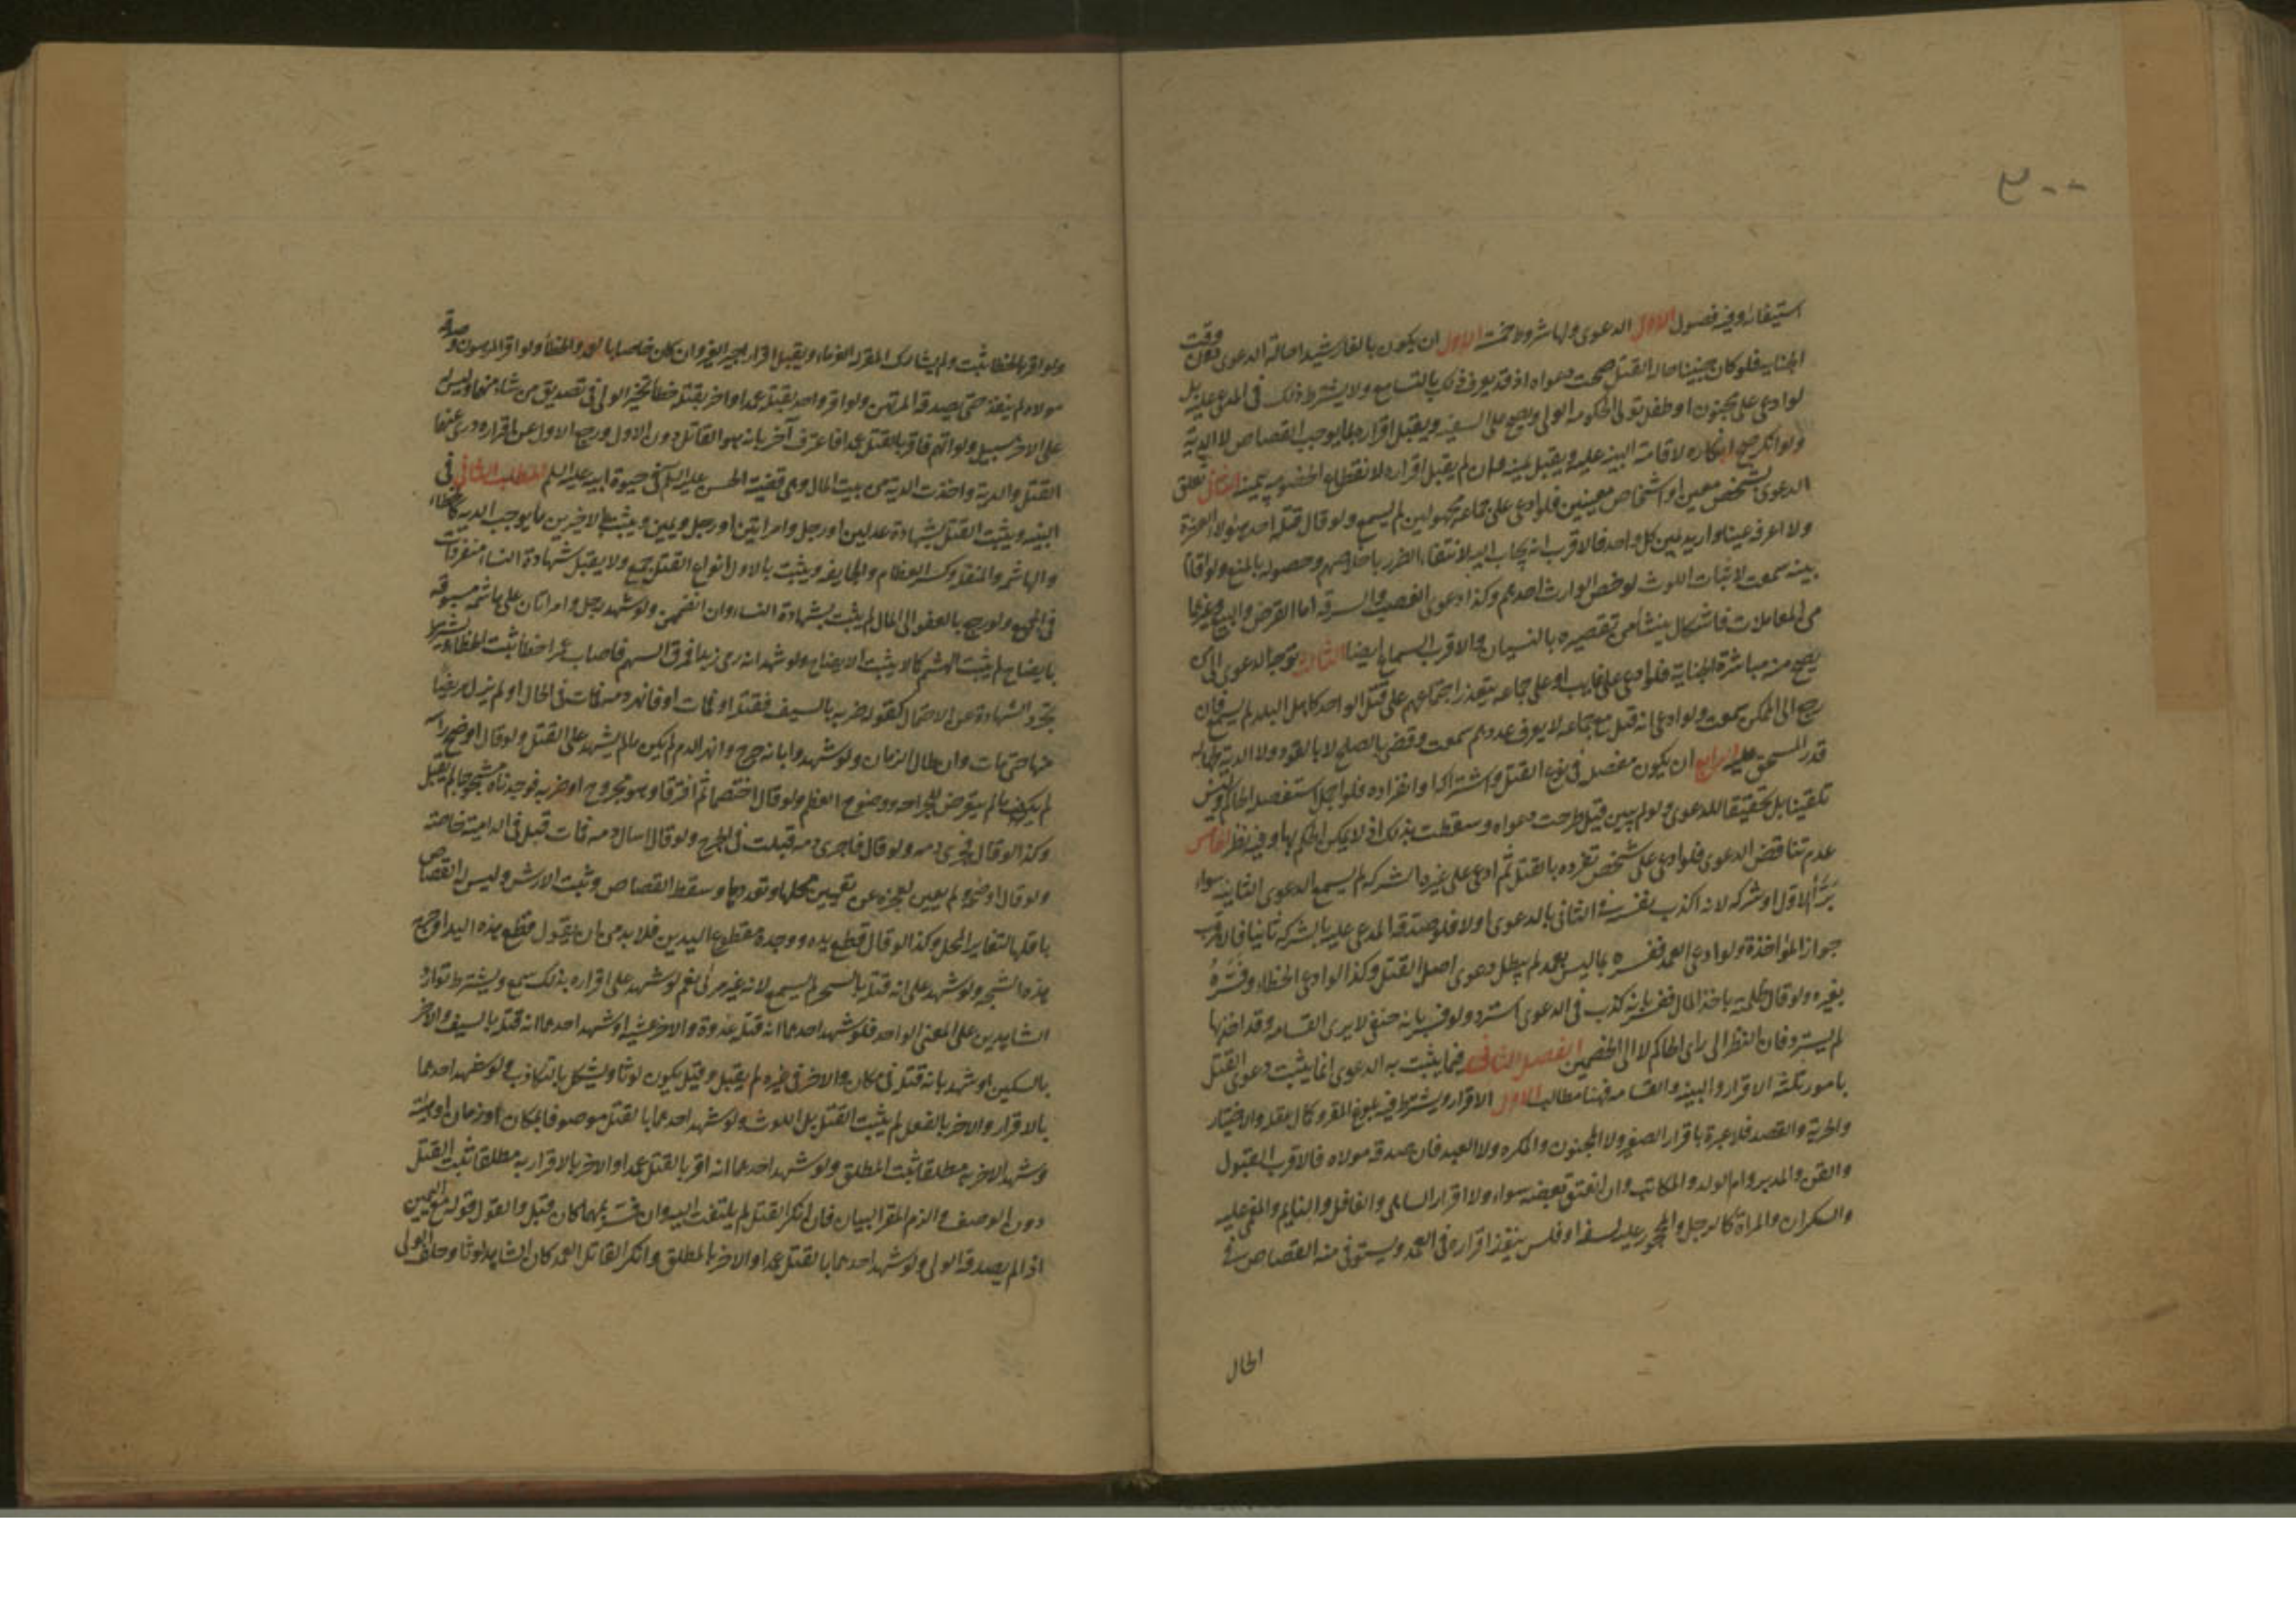 ٣٠٠
استيفائه وفيه فصول الاول الدعوى ولها شروط خمسة الاول ان يكون بالغا رشيدا حالة الدعوى دون وقت
الجناية فلو كان جنينا حالة القتل صحت دعواه اذ قد يعرف ذلك بالتسامع ولا يشترط ذلك في المدعى عليه بل
لو ادعى على مجنون او طفل تولى الحكومة الولي ويصح على السفيه ويقبل اقراره بما يوجب القصاص لا الدية
ولو انكر صح انكاره لاقامة البينة عليه ويقبل يمينه وان لم يقبل اقراره لانقطاع الخصومة بيمينه الثاني تعلق
الدعوى بشخص معين او اشخاص معينين فلو ادعى على جماعة مجهولين لم يسمع ولو قال قتله احد هؤلاء العشرة
ولا اعرف عينا واريد يمين كل واحد فالاقرب انه يجاب اليه لانتفاء الضرر باحلافهم وحصوله بالمنع ولو اقام
بينة سمعت لاثبات اللوث لو خص الوارث احدهم وكذا دعوى الغصب والسرقة اما القرض والبيع وغيرها
من المعاملات فاشكال ينشأ من تقصيره بالنسيان والاقرب السماع ايضا الثالث توجه الدعوى الى من
يصح منه مباشرة الجناية فلو ادعى على غايب او على جماعة يتعذر اجتماعهم على قتل الواحد كاهل البلد لم يسمع فان
رجع الى الممكن سمعت ولو ادعى انه قتل مع جماعة لا يعرف عددهم سمعت وقضى بالصلح لا بالقود ولا الدية لجهالة
قدر المستحق عليه الرابع ان يكون مفصل في نوع القتل واشتراكه وانفراده فلو اجمل استفصله الحاكم وليس
تلقينا بل تحقيقا للدعوى ولو لم يبين قيل طرحت دعواه وسقطت بذلك اذ لا يمكن الحكم بها وفيه نظر الخامس
عدم تناقض الدعوى فلو ادعى على شخص تفرده بالقتل ثم ادعى على غيره الشركة لم يسمع الدعوى الثانية سواء
برّأ الاول او شركه لانه اكذب نفسه في الثاني بالدعوى اولا فلو صدقه المدعى عليه بالشركة ثانيا فالاقرب
جواز المؤاخذة ولو ادعى العمد ففسره بما ليس بعمد لم يبطل دعوى اصل القتل وكذا لو ادعى الخطاء وفسّره
بغيره ولو قال ظلمته باخذ المال ففسر بانه كذب في الدعوى استرد ولو فسر بانه حنفي لا يرى القسامة وقد اخذ بها
لم يسترد فان النظر الى راى الحاكم لا الى الخصمين الفصل الثاني فيما يثبت به الدعوى انما يثبت دعوى القتل
بامور ثلثة الاقرار والبينة والقسامة فهنا مطالب الاول الاقرار ويشترط فيه بلوغ المقر وكمال عقله والاختيار
والحرية والقصد فلا عبرة باقرار الصغير ولا المجنون والمكره ولا العبد فان صدقه مولاه فالاقرب القبول
والقن والمدبر وام الولد والمكاتب وان انعتق بعضه سواء ولا اقرار الساهي والغافل والنايم والمغمى عليه
والسكران والمراة كالرجل والمحجور عليه لسفه او فلس ينفذ اقراره في العمد ويستوفى منه القصاص في
الحال
ولو اقر بالخطا ثبت ولم يشارك المقر له الغرماء ويقبل اقرار اجير الغير وان كان خاصا بالعمد والخطأ ولو اقر المرهون وصدقه
مولاه لم ينفذ حتى يصدقه المرتهن ولو اقر واحد بقتله عمدا واخر بقتله خطأ تخير الولي في تصديق من شاء منهما وليس له
على الاخر سبيل ولو اتهم فاقر بالقتل عمدا فاعترف آخر بانه هو القاتل دون الاول ورجع الاول عن اقراره درئ عنهما
القتل والدية واخذت الدية من بيت المال وهي قضية الحسن عليه السلم في حيوة ابيه عليه السلم المطلب الثاني في
البينة ويثبت القتل بشهادة عدلين او رجل وامراتين او رجل ويمين ويثبت بالاخيرين ما يوجب الدية كالخطاء
والهاشمة والمنقلة وكسر العظام والجايفة ويثبت بالاول انواع القتل اجمع ولا يقبل شهادة النساء منفردات
في الجميع ولو رجع بالعفو الى المال لم يثبت بشهادة النساء وان انضممن ولو شهد رجل وامراتان على هاشمة مسبوقة
بايضاح لم يثبت الهشم كما لا يثبت الايضاح ولو شهد انه رمى زيدا فمرق السهم فاصاب عمرا خطأ ثبت الخطاء ويشترط
تجرد الشهادة عن الاحتمال كقوله ضربه بالسيف فقتله او فمات او فانهر دمه فمات في الحال او لم يزل مريضا
منها حتى مات وان طال الزمان ولو شهدوا بانه جرح وانهر الدم لم يكن ما لم يشهد على القتل ولو قال اوضح رأسه
لم يكف ما لم يتعرض للجراحة ووضوح العظم ولو قال اختصما ثم افترقا وهو مجروح او ضربه فوجدناه مشجوجا لم يقبل
وكذا لو قال فجرى دمه ولو قال فاجرى دمه قبلت في الجرح ولو قال اسال دمه فمات قبل في الدامية خاصة
ولو قال اوضحه ولم يعين لعجزه عن تعيين محلها وتعددها وسقط القصاص وثبت الارش وليس له القصاص
باقلها لتغاير المحل وكذا لو قال قطع يده ووجده مقطوع اليدين فلا بد من ان يقول قطع هذه اليد او جرحه
هذه الشجة ولو شهد على انه قتله بالسحر لم يسمع لانه غير مرئي نعم لو شهد على اقراره بذلك سمع ويشترط توارد
الشاهدين على المعنى الواحد فلو شهد احدهما انه قتله غدوة والاخر عشية او شهد احدهما انه قتله بالسيف والاخر
بالسكين او شهد بانه قتله في مكان والاخر في غيره لم يقبل وقيل يكون لوثا ويشكل بالتكاذب ولو شهد احدهما
بالاقرار والاخر بالفعل لم يثبت القتل بل اللوث ولو شهد احدهما بالقتل موصوفا بمكان او زمان او هيئة
وشهد الاخر به مطلقا ثبت المطلق ولو شهد احدهما انه اقر بالقتل عمدا والاخر بالاقرار به مطلقا ثبت القتل
دون الوصف والزم المقر البيان فان انكر القتل لم يلتفت اليه وان فسّر بمهما كان قبل والقول قوله مع اليمين
اذا لم يصدقه الولي ولو شهد احدهما بالقتل عمدا والاخر بالمطلق وانكر القاتل العمد كان الشاهد لوثا وحلف الولي